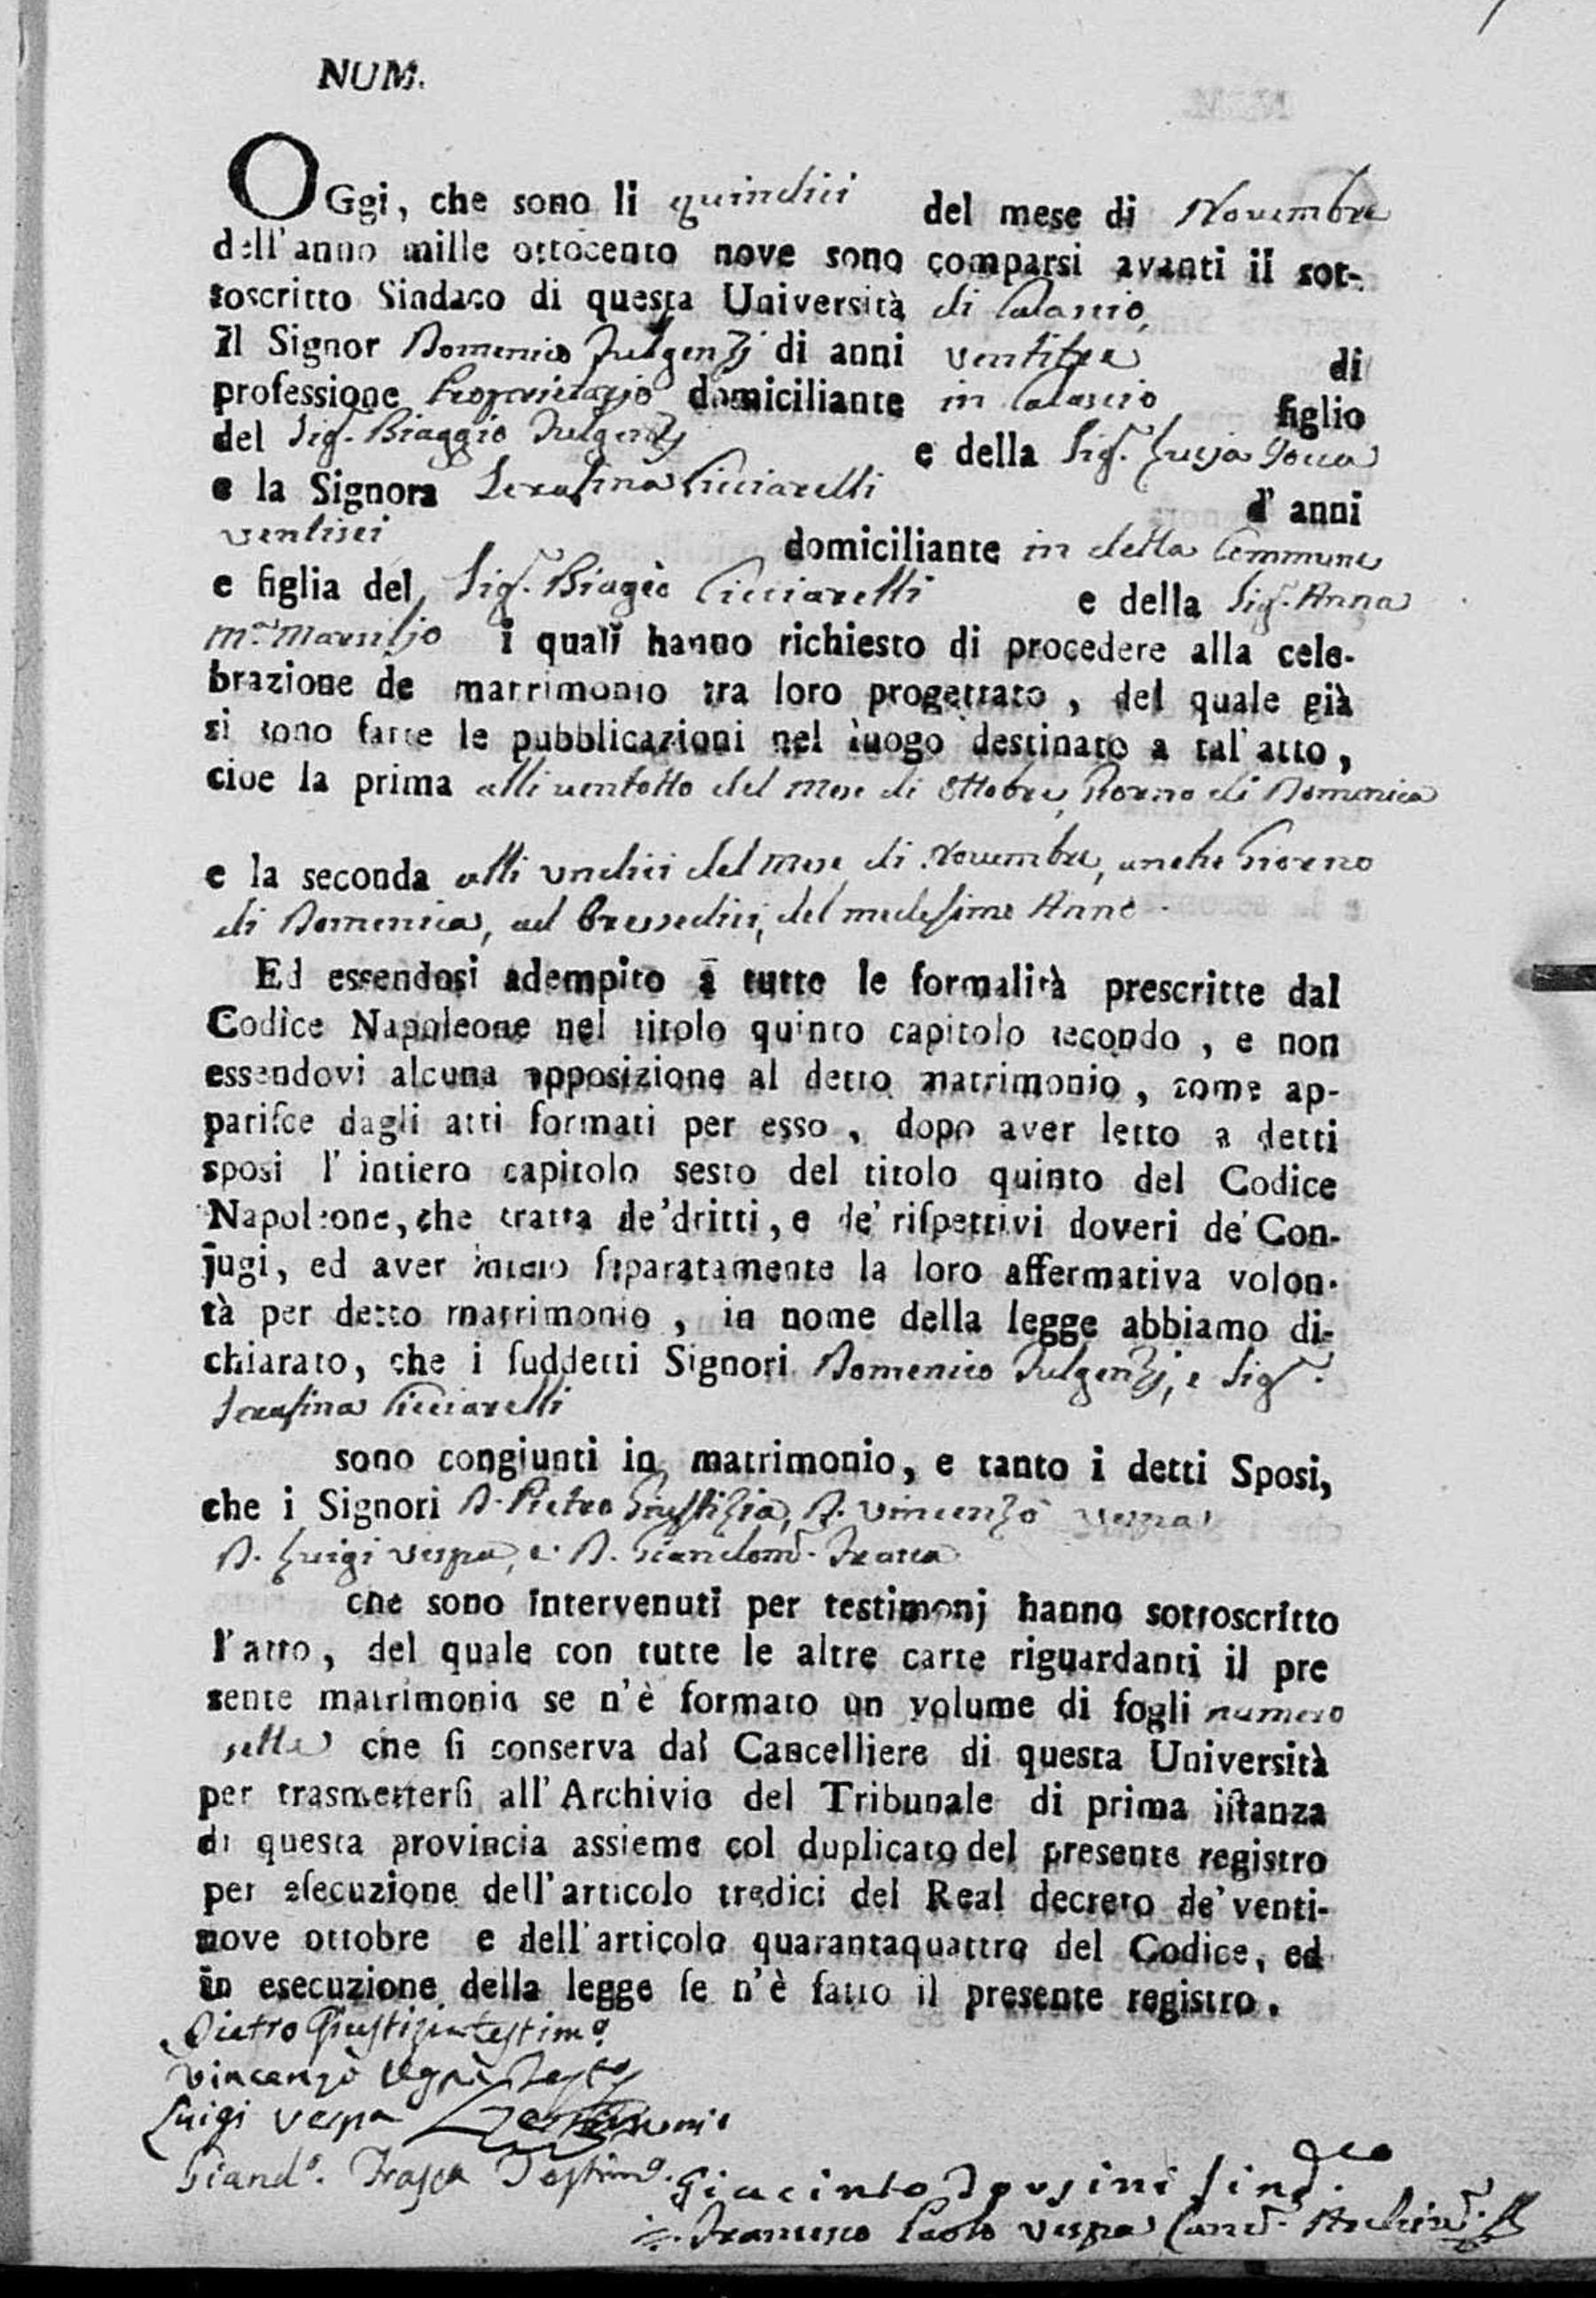 NUM.
OGgi, che sono li quindici del mese di Novembre
dell'anno mille ottocento nove sono comparsi avanti il sot-
toscritto Sindaco di questa Università di Calascio,
Il Signor Domenico Fulgenzj di anni ventitre di
professione Proprietario domiciliante in Calascio figlio
del Sig.r Biaggio Fulgenzj e della Sig.ra
e la Signora Serafina Cicciarelli d' anni
ventisei domiciliante in detta Commune
e figlia del Sig.r Biagio Cicciarelli e della Sig.ra Anna
M.a Marsilio i quali hanno richiesto di procedere alla cele-
brazione de matrimonio tra loro progettato, del quale già
si sono fatte le pubblicazioni nel luogo destinato a tal'atto,
cioe la prima alli ventotto del Mese di Ottobre, Giorno di Domenica
e la seconda alli undici del Mese di Novembre, anche Giorno
di Domenica, ad ore sedici, del medesimo Anno.
Ed essendosi adempito a tutte le formalità prescritte dal
Codice Napoleone nel titolo quinto capitolo secondo, e non
essendovi alcuna opposizione al detto matrimonio, come ap-
parisce dagli atti formati per esso, dopo aver letto a detti
sposi l' intiero capitolo sesto del titolo quinto del Codice
Napoleone, che tratta de'dritti, e de' rispettivi doveri de' Con-
jugi, ed aver inteso separatamente la loro affermativa volon-
tà per detto matrimonio, in nome della legge abbiamo di-
chiarato, che i suddetti Signori Domenico Fulgenzj, e Sig.ra
Serafina Cicciarelli
sono congiunti in matrimonio, e tanto i detti Sposi,
che i Signori D. Pietro Giustizia, D. Vincenzo Vespa
D. Luigi Vespa, e D. Giandom.o Frasca
che sono intervenuti per testimonj hanno sottoscritto
l'atto, del quale con tutte le altre carte riguardanti il pre
sente matrimonio se n'è formato un volume di fogli numero
sette che si conserva dal Cancelliere di questa Università
per trasmettersi all'Archivio del Tribunale di prima istanza
di questa provincia assieme col duplicato del presente registro
per esecuzione dell'articolo tredici del Real decreto de' venti-
nove ottobre e dell'articolo quarantaquattro del Codice, ed
in esecuzione della legge se n'è fatto il presente registro.
Pietro Giustizia testim.o
Vincenzo Vespa Test.o
Luigi Vespa Testimonio
Giand.o Frasca Testim.o
Giacinto Sind.co
Francesco Paolo Vespa Canc.